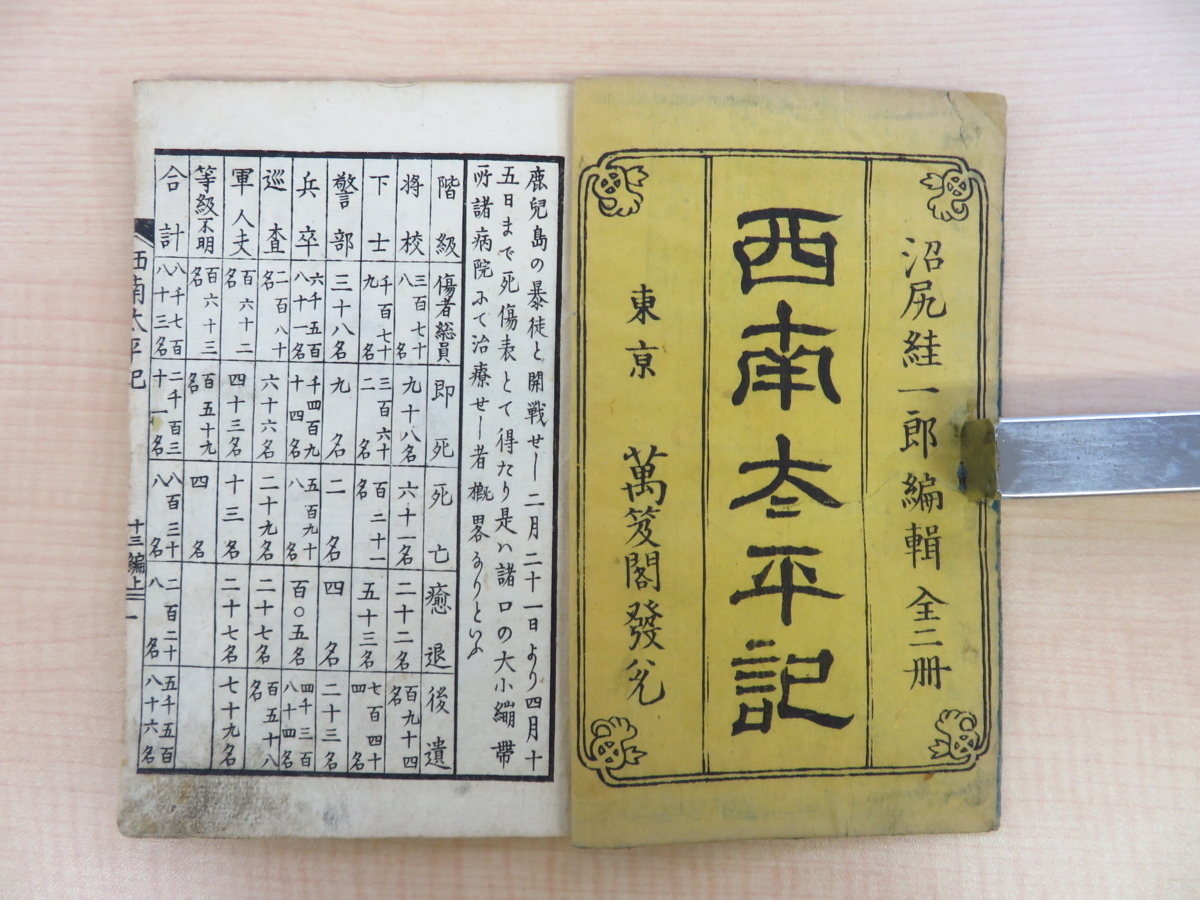 沼尻絓一郎編輯 全二冊
西南太平記
東京 萬笈閣發兌
鹿兒島の暴徒と開戦せし二月二十一日より四月十
五日まで死傷表とて得たり是ハ諸口の大小繃帶
所諸病院にて治療せし者概畧なりといふ
階級 傷者総員 即死 死亡 癒退 後遺
将校 三百七十八名 九十八名 六十一名 二十二名 百九十四名
下士 千百七十九名 三百六十二名 百二十一名 五十三名 七百四十四名
警部 三十八名 九名 二名 四名 二十三名
兵卒 六千五百八十一名 千四百九十四名 五百九十八名 百〇五名 四千三百八十四名
巡査 二百八十二名 六十六名 二十九名 二十七名 百五十八名
軍人夫 百六十二名 四十三名 十三名 二十七名 七十九名
等級不明 百六十三名 百五十九名 四名
合計 八千七百八十三名 二千百三十一名 八百三十八名 二百二十八名 五千五百八十六名
西南太平記 十三編上 一